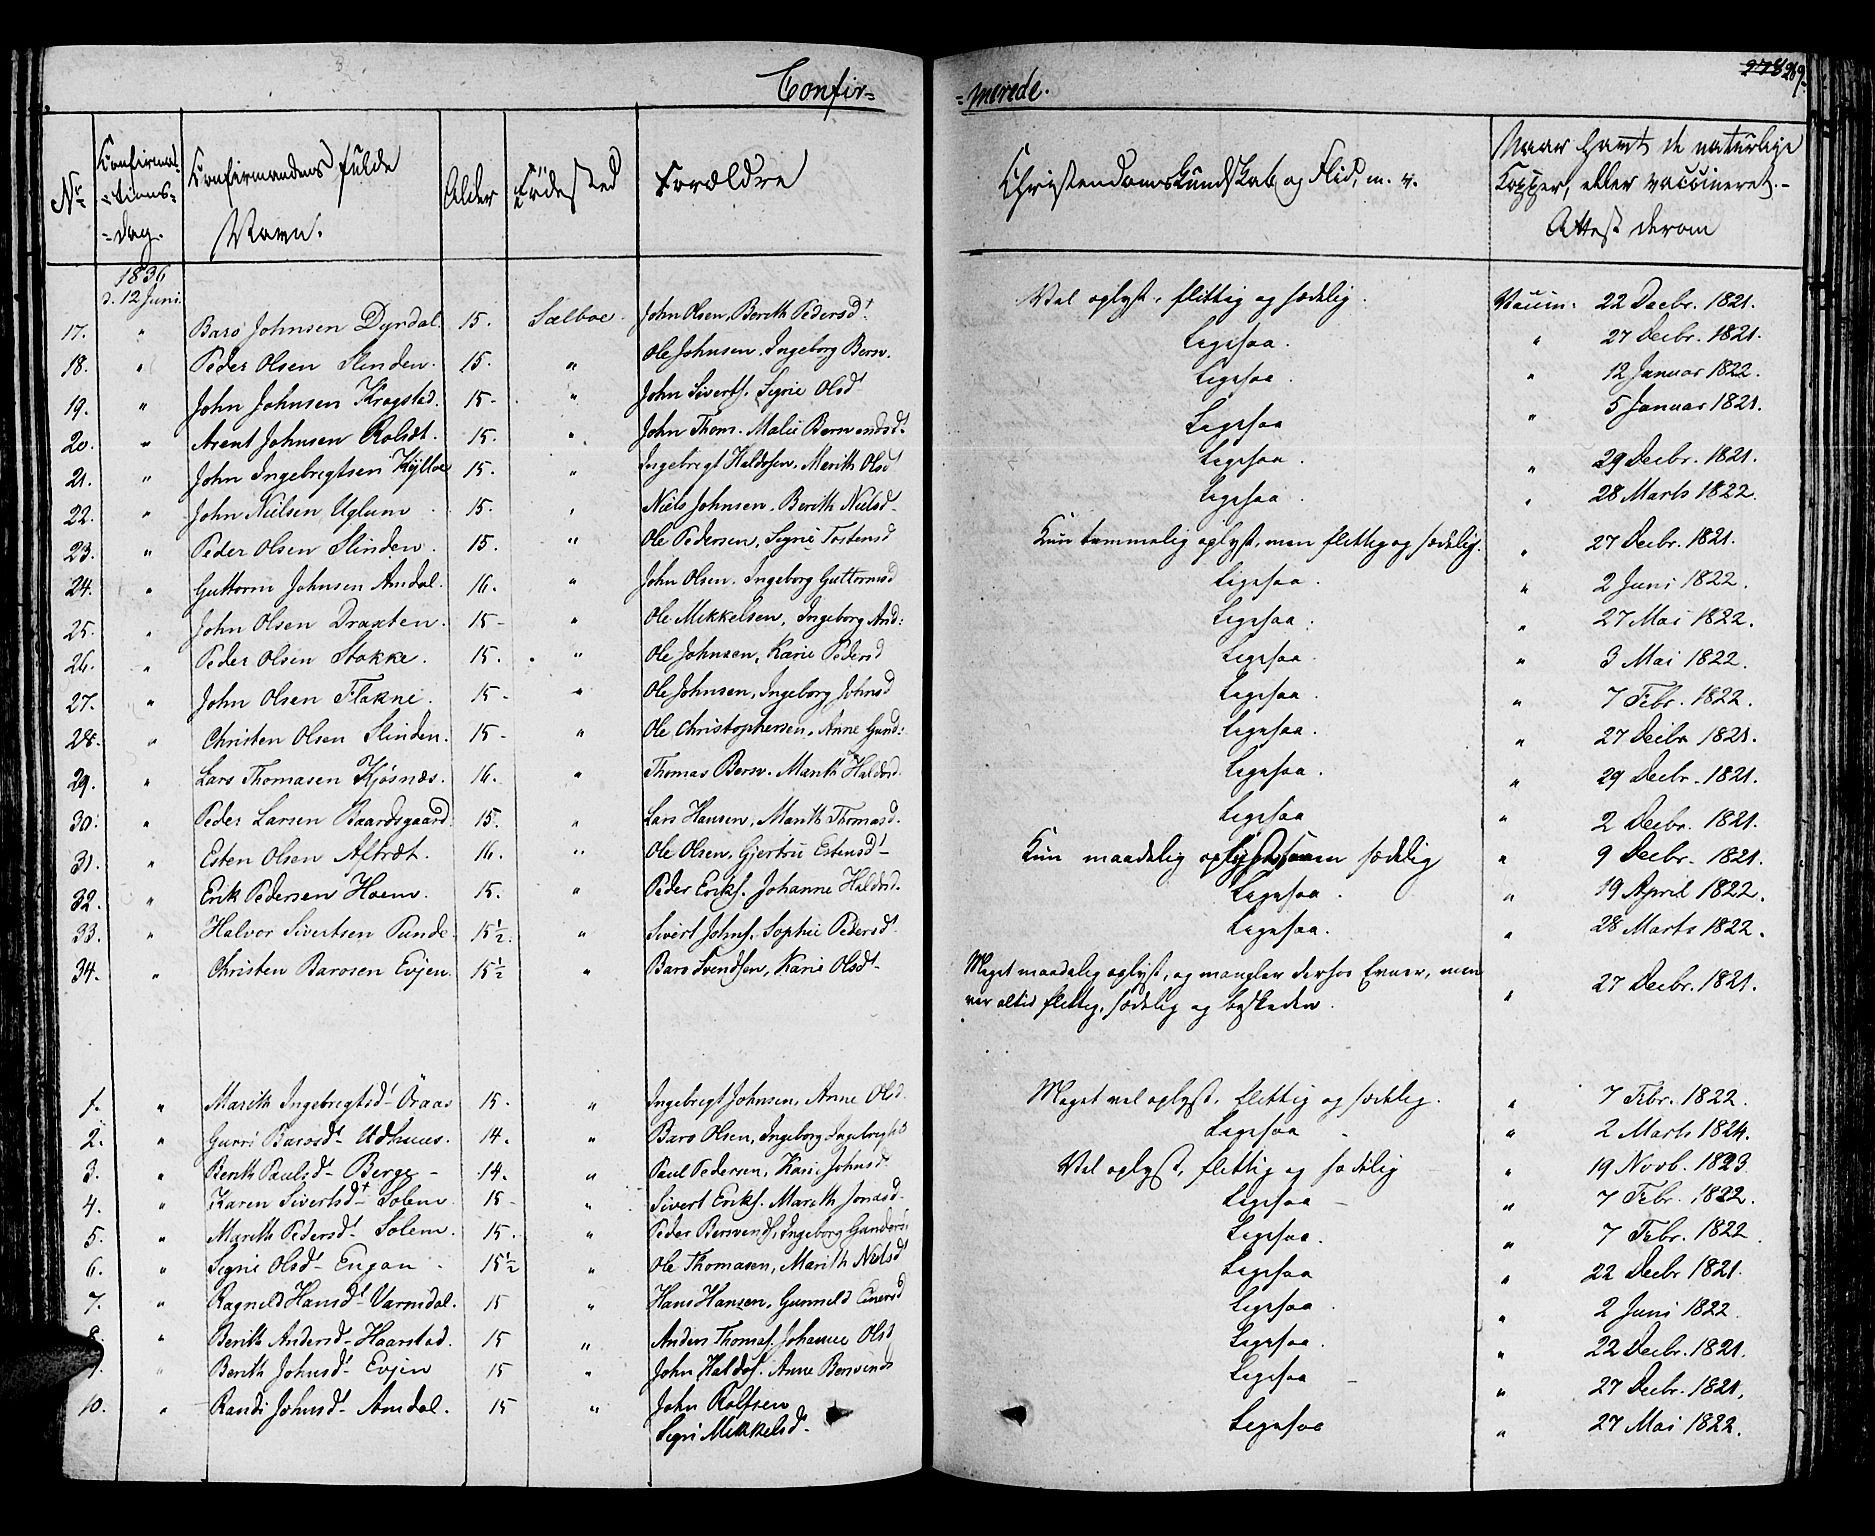 Confir=
=merede.
278 269.
Nr.
Confirma=
=tions=
=dag.
Confirmandens fulde
Navn.
Alder
Födested
Forældre
Christendomskundskab og Flid, m. v.
Naar havt de naturlige
Kopper, eller vaccineret. -
Attest derom
1836
d. 12 Juni.
17. " Baro Johnsen Dyrdal. 15. Sælboe. John Olsen, Berith Pedersd. Vel oplyst, flittig og sædelig. Vaccin: 22 Decbr. 1821.
18. " Peder Olsen Slinden. 15. " Ole Johnsen, Ingeborg Bersv. Ligesaa. " 27 Decbr. 1821.
19. " John Johnsen Kragstad. 15. " John Siverts. Segrie Olsd Ligesaa. " 12 Januar 1822.
20. " Arent Johnsen Rolset. 15. " John Thom. Malie Bersvendsd. Ligesaa " 5 Januar 1821.
21. " John Ingebregtsen Kyllve 15. " Ingebregt Haldosen, Merith Olsd Ligesaa. " 29 Decbr. 1821.
22. " John Nielsen Uglum 15. " Niels Johnsen, Berith Nielsd Ligesaa. " 28 Marts 1822.
23. " Peder Olsen Slinden. 15. " Ole Pedersen, Segrie Tostensd Kun temmelig oplyst, men flittig og sædelig. " 27 Decbr. 1821.
24. " Guttorm Johnsen Amdal. 16. " John Olsen, Ingeborg Guttormsd Ligesaa. " 2 Juni 1822.
25. " John Olsen Draxten. 15 " Ole Mikkelsen, Ingeborg And: Ligesaa. " 27 Mai 1822.
26. " Peder Olsen Stokke. 15. " Ole Johnsen, Karie Pedersd Ligesaa. " 3 Mai 1822.
27. " John Olsen Flakne. 15 " Ole Johnsen, Ingeborg Johnsd Ligesaa. " 7 Febr. 1822.
28. " Christen Olsen Slinden. 15 " Ole Christophersen, Anne Gund: Ligesaa. " 27 Decbr 1821.
29. " Lars Thomasen Kjøsnæs. 16. " Thomas Bersv. Marith Haldosd. Ligesaa. " 29 Decbr. 1821.
30. " Peder Larsen Baardsgaard. 15. " Lars Hansen, Marith Thomasd. Ligesaa " 2 Decbr. 1821.
31. " Esten Olsen Alstræt. 16. " Ole Olsen, Gjertru Estensd Kun maadelig oplyst, men sædelig " 9 Decbr. 1821.
32. " Erik Pedersen Hoem. 15. " Peder Eriks. Johanne Haldosd. Ligesaa. " 19 April 1822.
33. " Halvor Sivertsen Punde. 15½. " Sivert Johns. Sophie Pedersd. Ligesaa. " 28 Marts 1822.
34. " Christen Barosen Evjen. 15½ " Baro Svendsen, Karie Olsd Meget maadelig oplyst, og mangler derhos Evner, men
var altid flittig, sædelig og beskeden. " 27 Decbr. 1821.
1. " Marith Ingebregtsd Öraas 15. " Ingebregt Johnsen, Anne Olsd Meget vel oplyst, flittig og sædelig. " 7 Febr. 1822.
2. " Gurri Barosd Udhuus. 14. " Baro Olsen, Ingeborg Ingebregtsd Ligesaa " 2 Marts 1824.
3. " Berith Paulsd Berge 14. " Paul Pedersen, Kari Johnsd Vel oplyst, flittig og sædelig " 19 Novb. 1823.
4. " Karen Sivertsd Solem. 15 " Sivert Eriks. Marith Jonasd. Ligesaa " 7 Febr. 1822.
5. " Marith Pedersd Solem. 15. " Peder Bersvends, Ingeborg Gunders: Ligesaa. " 7 Febr. 1822
6. " Segrie Olsd Engan 15½ " Ole Thomasen, Marith Nielsd Ligesaa " 22 Decbr 1821.
7. " Ragneld Hansd Varmdal. 15 " Hans Hansen, Gunneld Einersd Ligesaa. " 2 Juni 1822.
8. " Berith Andersd Haarstad. 15 " Anders Thomas. Johanne Olsd Ligesaa. " 22 Decbr. 1821.
9. " Berith Johnsd Evjen 15 " John Haldos. Anne Bersvends Ligesaa " 27 Decbr. 1821.
10. " Randi Johnsd Amdal. 15 " John Rolfsen
Segri Mikkelsd. Ligesaa " 27 Mai 1822.